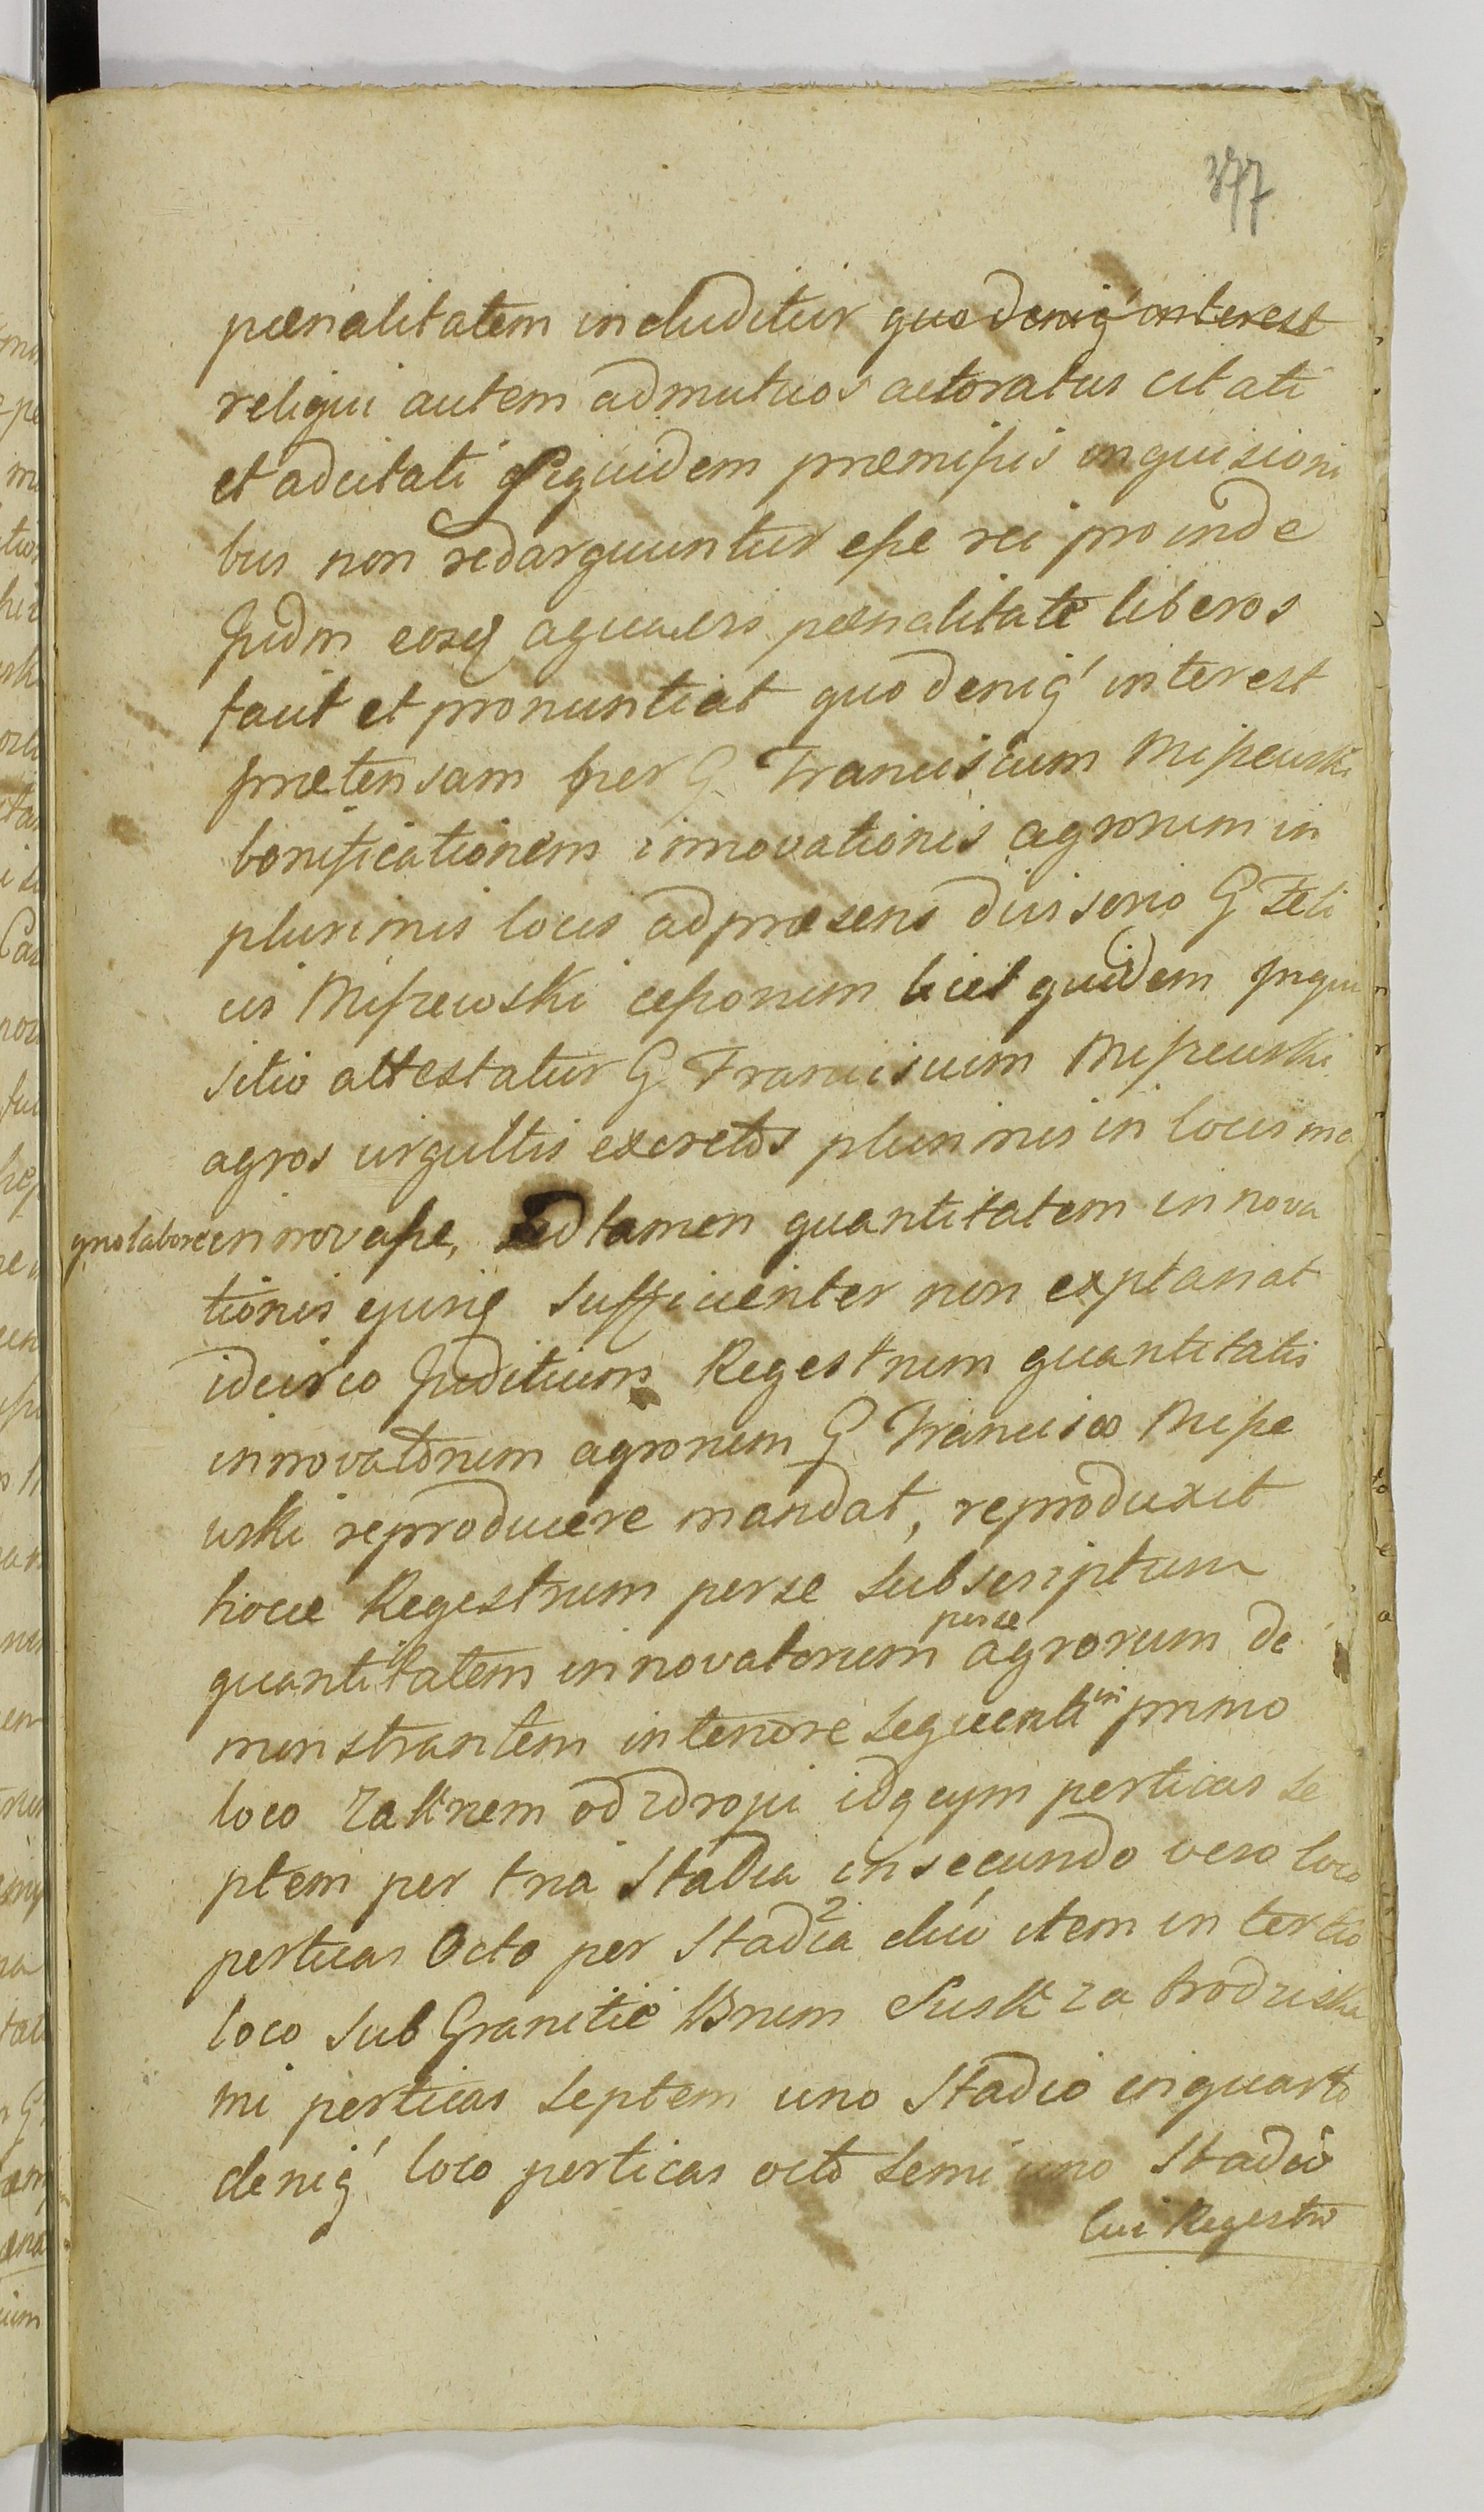 377
pœnalitatem includitur quo deniq́ interest
reliqui autem ad mutuos actoratus citati
et adcitati siquidem præmissis inquisioni
bus non redarguuntur esse rei proinde
Judm eosq a quavis pœnalitate liberos
facit et pronuntiat quo deniq́ interest
prætensam per G Franciscum Miszewski
bonificationem innovationis agrorum in
plurimis locis ad præsens divisorio G Feli
cis Miszewski cessorum licet quidem Inqui
sitio attestatur G Franciscum Miszewski
agros virgultis excretos plurimis in locis ma
gno labore innovasse, sed tamen quantitatem innova
tionis ejusq sufficienter non explanat
idcirco Juditium Regestrum quantitatis
innovatorum agrorum G Francisco Misze
wski reproducere mandat, reproduxit
hocce Regestrum per se subscriptum
quantitatem innovatorum per se agrorum de
monstrantem in tenore sequenti in primo
loco za krzem od zdropi idqcym perticas se
ptem per tria Stadia in secundo vero loco
perticas Octo per Stadia 2 duo item in tertio
loco sub Granitie Brum Susk za brodziska
mi perticas septem uno Stadio in quarto
deniq́ loco perticas octo semi uno Stadio
Cui Regestro